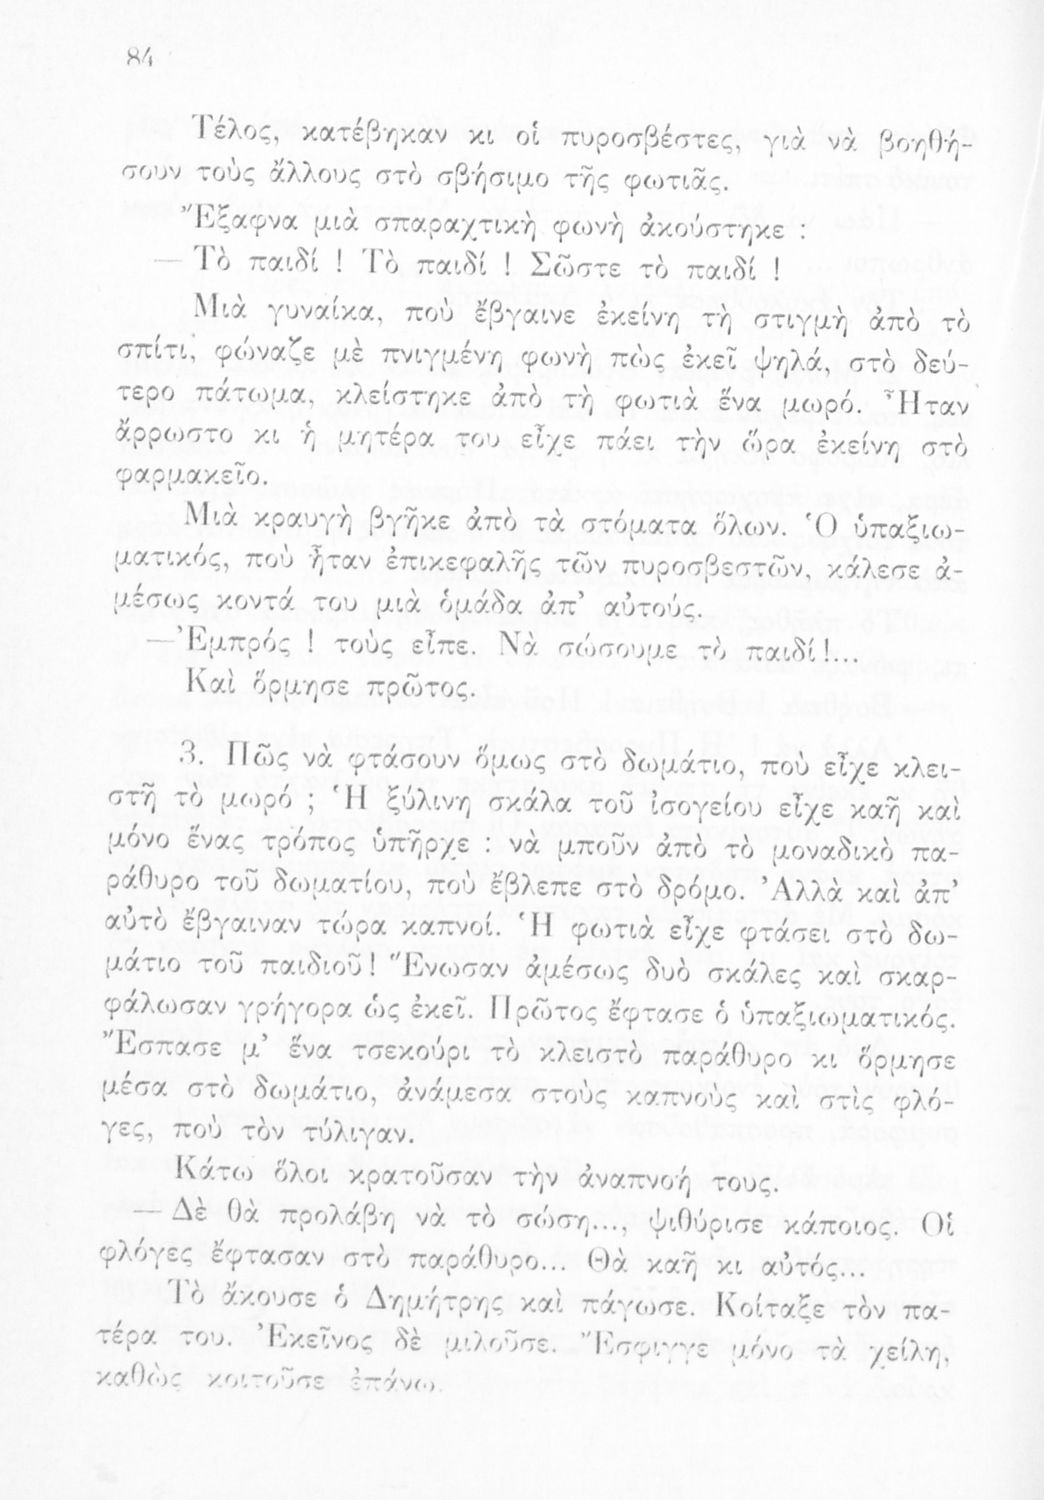 84
Τέλος, κατέβηκαν κι οἱ πυροσβέστες, γιὰ νὰ βοηθή-
σουν τοὺς ἄλλους στὸ σβήσιμο τῆς φωτιᾶς.
Ἔξαφνα μιὰ σπαραχτικὴ φωνὴ ἀκούστηκε :
— Τὸ παιδί ! Τὸ παιδί ! Σῶστε τὸ παιδί !
Μιὰ γυναίκα, ποὺ ἔβγαινε ἐκείνη τὴ στιγμὴ ἀπὸ τὸ
σπίτι, φώναζε μὲ πνιγμένη φωνὴ πὼς ἐκεῖ ψηλά, στὸ δεύ-
τερο πάτωμα, κλείστηκε ἀπὸ τὴ φωτιὰ ἕνα μωρό. Ἦταν
ἄρρωστο κι ἡ μητέρα του εἶχε πάει τὴν ὥρα ἐκείνη στὸ
φαρμακεῖο.
Μιὰ κραυγὴ βγῆκε ἀπὸ τὰ στόματα ὅλων. Ὁ ὑπαξιω-
ματικός, ποὺ ἦταν ἐπικεφαλῆς τῶν πυροσβεστῶν, κάλεσε ἀ-
μέσως κοντά του μιὰ ὁμάδα ἀπ’ αὐτούς.
—Ἐμπρός ! τοὺς εἶπε. Νὰ σώσουμε τὸ παιδί!...
Καὶ ὅρμησε πρῶτος.
3. Πῶς νὰ φτάσουν ὅμως στὸ δωμάτιο, ποὺ εἶχε κλει-
στῆ τὸ μωρό ; Ἡ ξύλινη σκάλα τοῦ ἰσογείου εἶχε καῆ καὶ
μόνο ἕνας τρόπος ὑπῆρχε : νὰ μποῦν ἀπὸ τὸ μοναδικὸ πα-
ράθυρο τοῦ δωματίου, ποὺ ἔβλεπε στὸ δρόμο. Ἀλλὰ καὶ ἀπ’
αὐτὸ ἔβγαιναν τώρα καπνοί. Ἡ φωτιὰ εἶχε φτάσει στὸ δω-
μάτιο τοῦ παιδιοῦ! Ἕνωσαν ἀμέσως δυὸ σκάλες καὶ σκαρ-
φάλωσαν γρήγορα ὡς ἐκεῖ. Πρῶτος ἔφτασε ὁ ὑπαξιωματικός.
Ἔσπασε μ’ ἕνα τσεκούρι τὸ κλειστὸ παράθυρο κι ὅρμησε
μέσα στὸ δωμάτιο, ἀνάμεσα στοὺς καπνοὺς καὶ στὶς φλό-
γες, ποὺ τὸν τύλιγαν.
Κάτω ὅλοι κρατοῦσαν τὴν ἀναπνοή τους.
— Δὲ θὰ προλάβη νὰ τὸ σώση..., ψιθύρισε κάποιος. Οἱ
φλόγες ἔφτασαν στὸ παράθυρο... Θὰ καῆ κι αὐτός...
Τὸ ἄκουσε ὁ Δημήτρης καὶ πάγωσε. Κοίταξε τὸν πα-
τέρα του. Ἐκεῖνος δὲ μιλοῦσε. Ἔσφιγγε μόνο τὰ χείλη,
καθὼς κοιτοῦσε ἐπάνω.